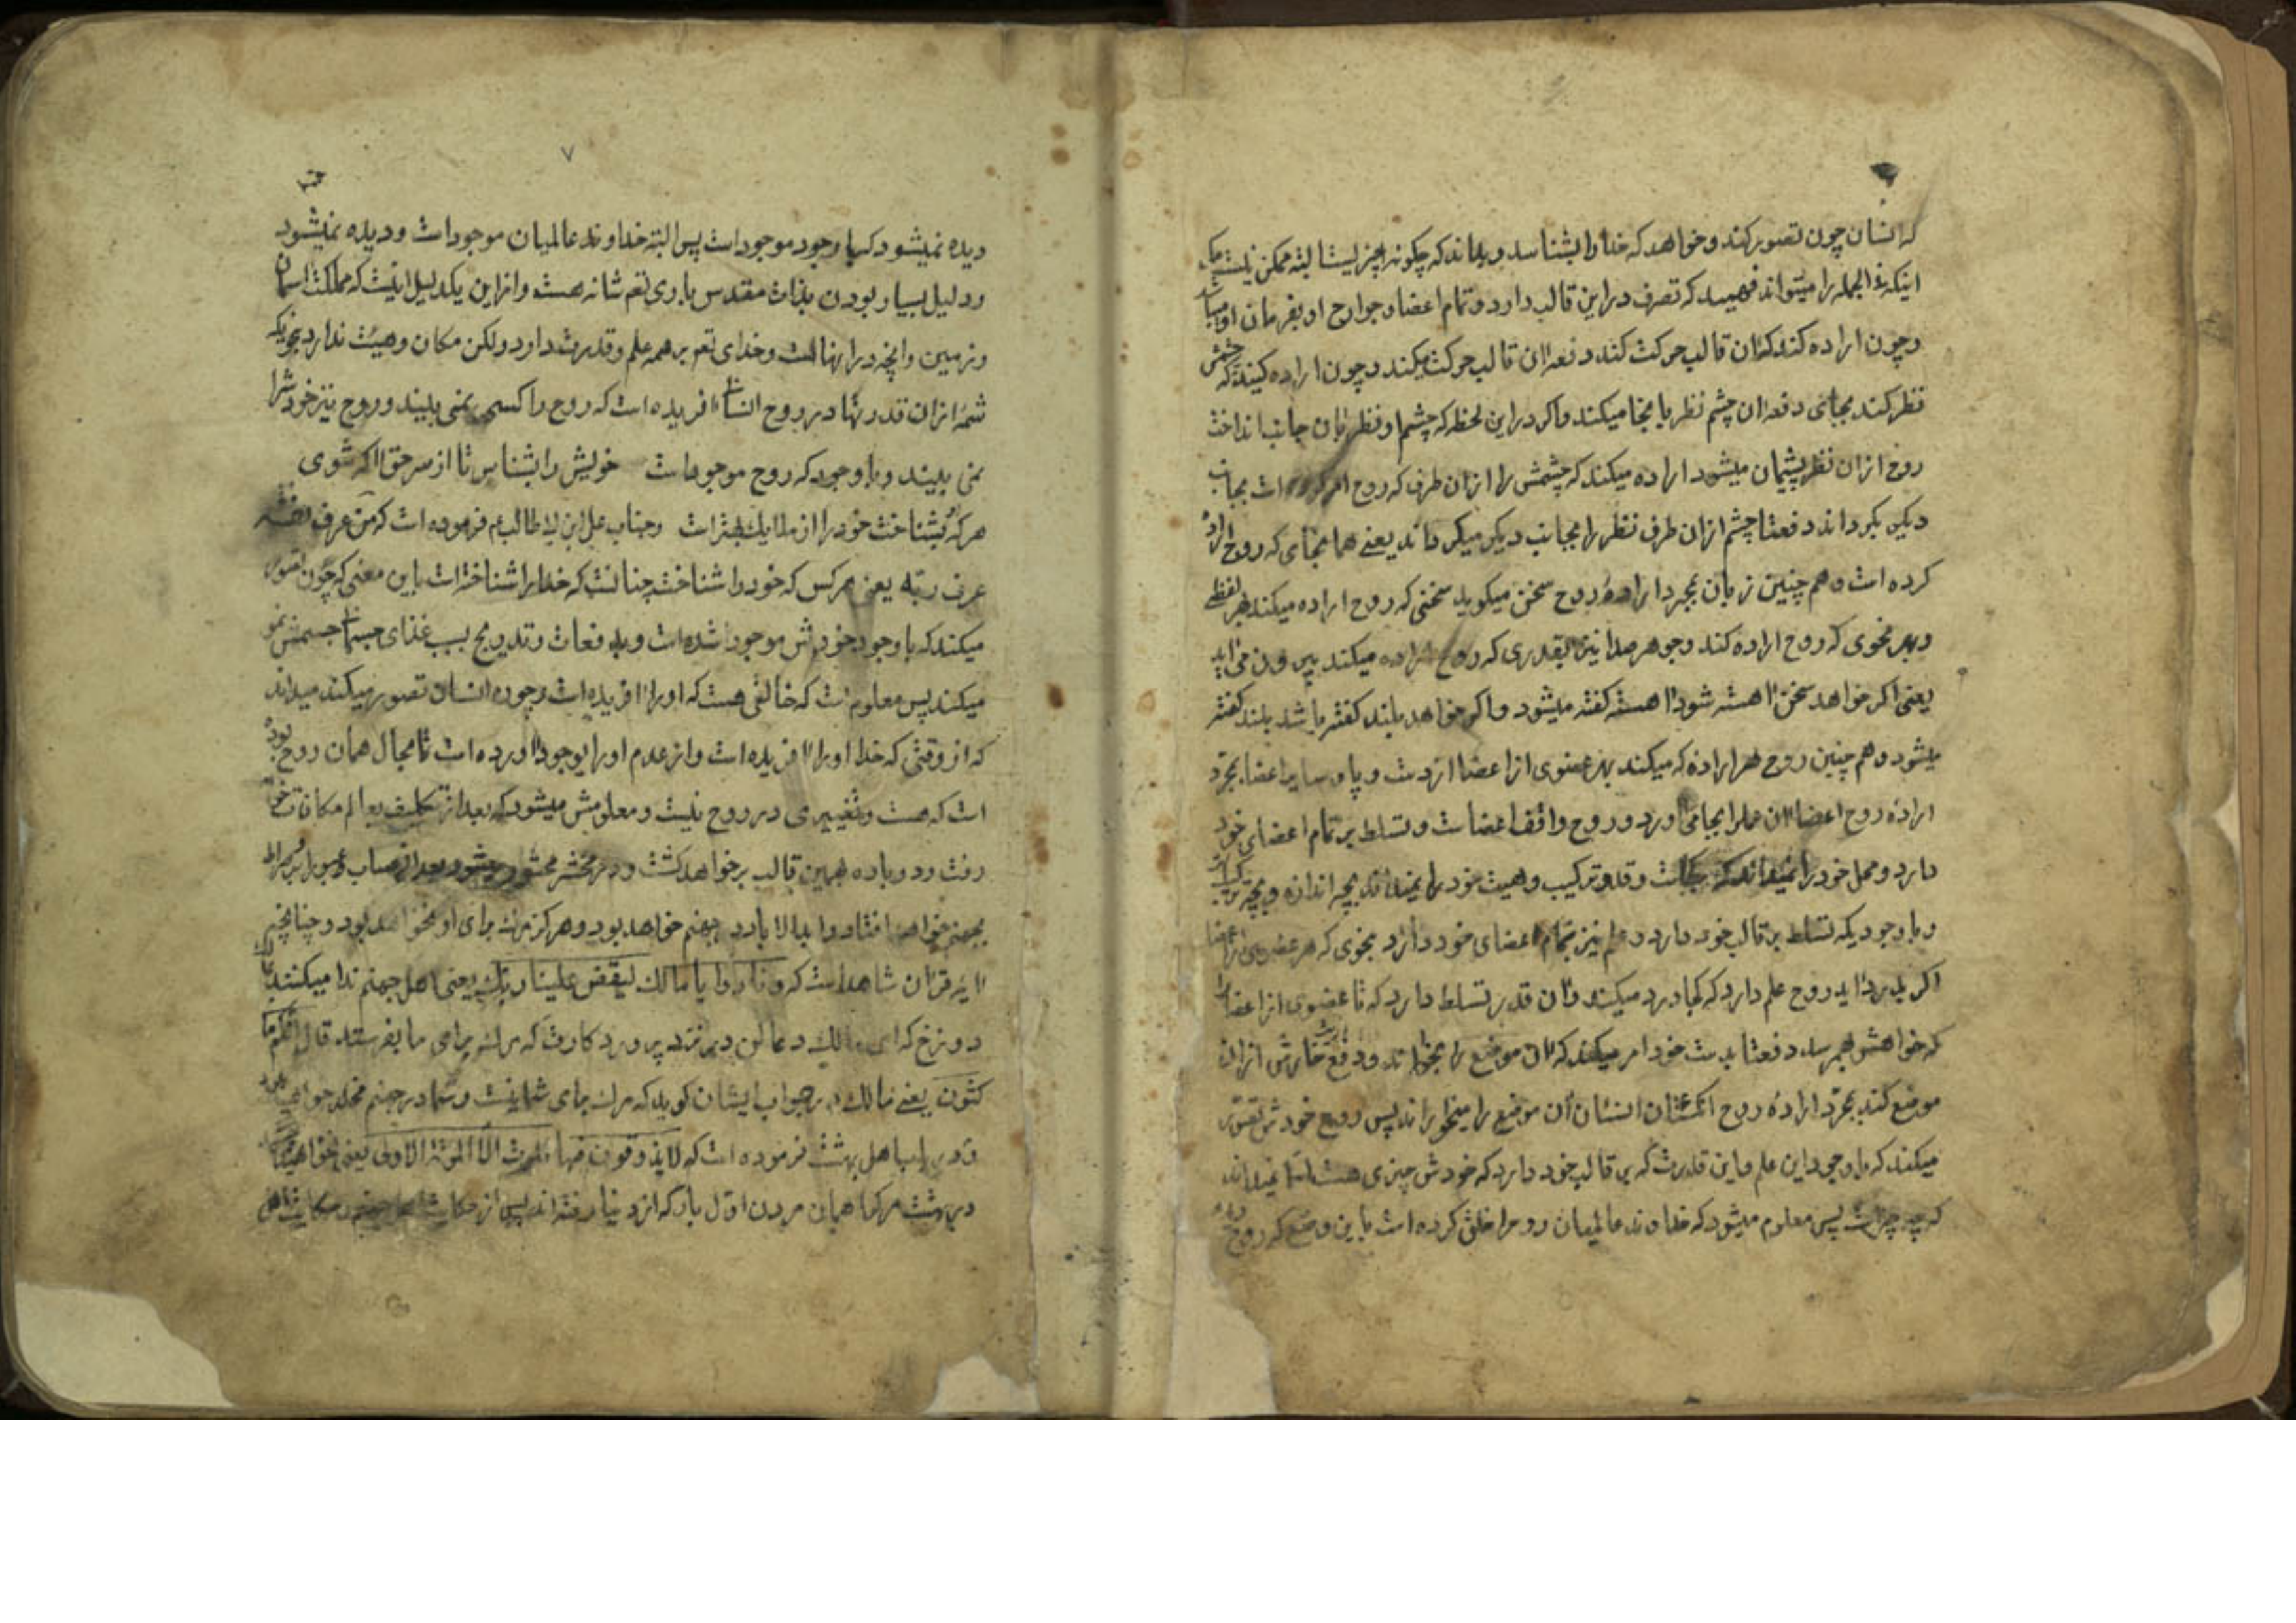 که انسان چون تصور کند و خواهد که خدا را بشناسد و بداند که چگونه چیزیست البته ممکن نیست
اینکه فی الجمله را میتواند فهمید که تصرف در این قالب دارد و تمام اعضا و جوارح او بفرمان او
و چون اراده کند که آن قالب حرکت کند دفعه آن قالب حرکت میکند و چون اراده کند که چشمش
نظر کند بجائی دفعه آن چشم نظر بآنجا میکند و اگر در این لحظه که چشم او نظر بآن جانب انداخت
روح از آن نظر پشیمان میشود اراده میکند که چشمش را از آن طرف که روح است بجانب
دیگر بگرداند دفعتا چشم از آن طرف نظر را بجانب دیگر میگرداند یعنی همانجای که روح اراده
کرده است و هم چنین زبان بمجرد اراده روح سخن میگوید سخنی که روح اراده میکند بهر لفظی
و بهر نحوی که روح اراده کند و جوهر صدا نیز بقدری که روح اراده میکند بیرون می آید
یعنی اگر خواهد سخن آهسته شود آهسته گفته میشود و اگر خواهد بلند گفته باشد بلند گفته
میشود و هم چنین روح هر اراده که میکند بهر عضوی از اعضا از دست و پا و سایر اعضا بمجرد
اراده روح اعضا آن عمل را بجا می آورد و روح واقف اعضاست و تسلط بر تمام اعضای خود
دارد و محل خود را نمیداند که کجاست و قد و ترکیب و هیئت خود را نمیداند بچه اندازه و بچه ترکیب
و با وجودیکه تسلط بر قالب خود دارد و علم نیز بتمام اعضای خود دارد بنحوی که هر عضوی از اعضا
اگر بدرد آید روح علم دارد که کجا درد میکند و آن قدر تسلط دارد که تا عضوی از اعضا را
که خواهش بهم رسد دفعتا بدست خود امر میکند که آن موضع را بخواراند و دفع خارش از آن
موضع کند بمجرد اراده روح انگشتان انسان آن موضع را میخواراند پس روح خودش تصور
میکند که با وجود این علم و این قدرت که بر قالب خود دارد که خودش چیزی هست اما نمیداند
که چه چیز است پس معلوم میشود که خداوند عالمیان روح را خلق کرده است باین وضع که روح
۷
دیده نمیشود که با وجود موجود است پس البته خداوند عالمیان موجود است و دیده نمیشود
و دلیل بسیار بودن بذات مقدس باری تعم شانه هست و از این یکدلیل اینست که مملکت آسمان
و زمین و آنچه در آنهاست و خدای تعم بر همه علم و قدرت دارد و لکن مکان و هیئت ندارد بنحویکه
شمه از آن قدرتها در روح انسان آفریده است که روح را کسی نمی بیند و روح نیز خود را
نمی بیند و با وجود که روح موجود است خویش را بشناس تا از سر حق آگه شوی
هر که بشناخت خود را از ملایک بهتر است و جناب علی ابن ابی طالب ع م فرموده است که من عرف نفسه
عرف ربه یعنی هر کس که خود را شناخت چنانست که خدا را شناخته است باین معنی که چون تصور
میکند که با وجود خودش موجود شده است و بدفعات و تدریج بسبب غذای جسمانی جسمش نمو
میکند پس معلوم است که خالقی هست که او را آفریده است و چون انسان تصور میکند میداند
که از وقتی که خدا او را آفریده است و از عدم او را بوجود آورده است تا بحال همان روح بوده
است که هست و تغییری در روح نیست و معلومش میشود که بعد از تکلیف بعالم مکافات خواهد
رفت و دوباره بهمین قالب برخواهد گشت و در محشر محشور میشود بعد از حساب و عبور از صراط
بجهنم خواهد افتاد و ابد الاباد در جهنم خواهد بود و هرگز مرگ برای او نخواهد بود و چنانچه
آیه قرآن شاهد است که و نادوا یا مالک لیقض علینا ربک یعنی اهل جهنم ندا میکنند مالک
دوزخ که ای مالک دعا کن در نزد پروردگارت که مرگ برای ما بفرستد قال انکم ما
کثون یعنی مالک در جواب ایشان گوید که مرگ برای شما نیست و شما در جهنم مخلد خواهید بود
و در باب اهل بهشت فرموده است که لا یذوقون فیها الموت الا الموتة الاولی یعنی نخواهند چشید
در بهشت مرگ را همان مردن اول بار که از دنیا رفته اند پس از